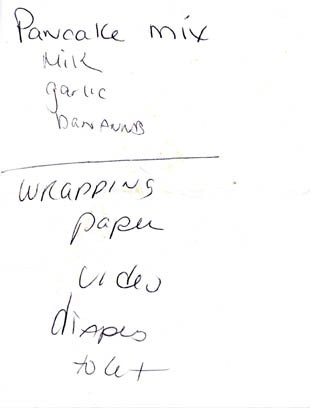 Pancake mix
Milk
garlic
BANANNS
WRAPPING
paper
video
diapes
toilet